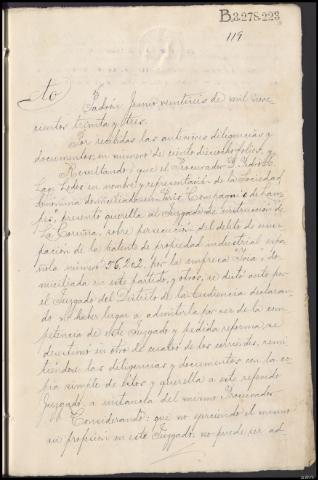 B.3.278.223
119
Auto
Padrón Junio veintiseis de mil nove
cientos treinta y tres.
Por recibidas las anteriores diligencias y
documentos, en número de ciento dieciocho folios, y
Resultando: que el Procurador D.
Ledo en nombre y representación de la Sociedad
Anónima domiciliada en Paris, Compagnie de Lam
pes, presentó querella al Juzgado de instrucción de
La Coruña, sobre persecución del delito de usur
pación de la patente de propiedad industrial espa
ñola número 56,262, por la empresa do
miciliada en este partido, y otros, se dictó auto por
el Juzgado del Distrito de la Audiencia declaran
do no haber lugar a admitirla por ser de la com
petencia de este Juzgado y pedida reforma, se
desestimó en otro de cuatro de los corrientes, remi
tiéndose las diligencias y documentos con la co
pia simple de ellos y querella a este referido
Juzgado, a instancia del mismo Procurador.
Considerando: que no ejerciendo el mismo
su profesión en este Juzgado, no puede ser ad